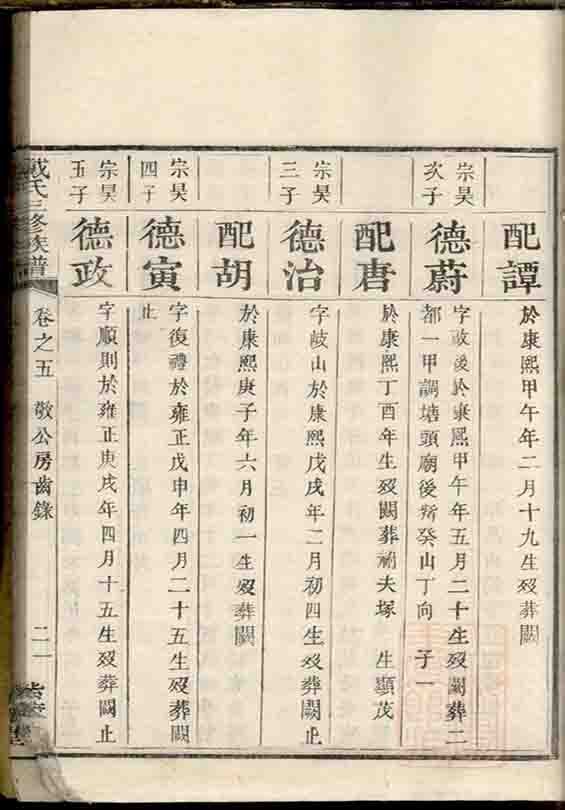 配譚
於康熙甲午年二月十九生歿葬闕
宗昊
次子
德蔚
字政後於康熙甲午年五月二十生歿闕葬二
都一甲調塘頭廟後癸山丁向 子一
配唐
於康熙丁酉年生歿闕葬祔夫塚 生顯茂
宗昊
三子
德治
字歧山於康熙戊戌年二月初四生歿葬闕止
配胡
於康熙庚子年六月初一生歿葬闕
宗昊
四子
德寅
字復禮於雍正戊申年四月二十五生歿葬闕
止
宗昊
五子
德政
字順則於雍正庚戌年四月十五生歿葬闕止
戴氏三修族譜
卷之五 敬公房齒錄
二一